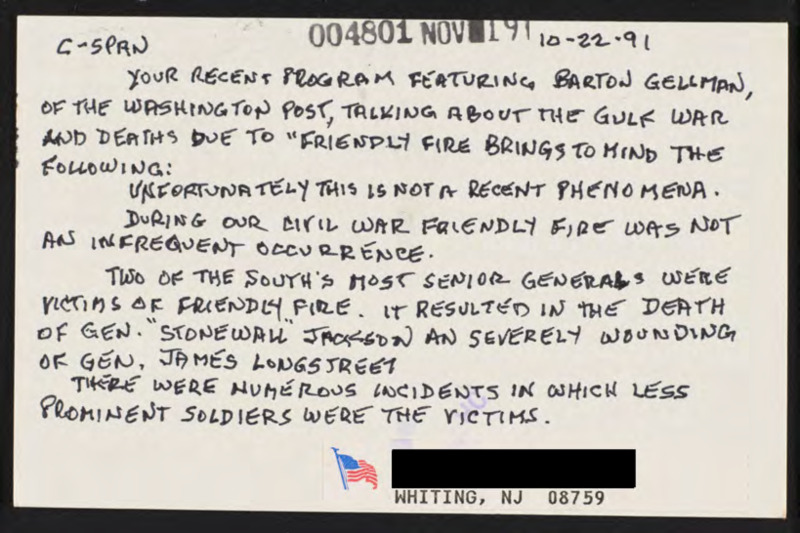 004801 NOV 191
C-SPAN 10-22-91
YOUR RECENT PROGRAM FEATURING BARTON GELLMAN,
OF THE WASHINGTON POST, TALKING ABOUT THE GULF WAR
AND DEATHS DUE TO "FRIENDLY FIRE BRINGS TO MIND THE
FOLLOWING:
UNFORTUNATELY THIS IS NOT A RECENT PHENOMENA.
DURING OUR CIVIL WAR FRIENDLY FIRE WAS NOT
AN INFREQUENT OCCURRENCE.
TWO OF THE SOUTH'S MOST SENIOR GENERALS WERE
VICTIMS OF FRIENDLY FIRE. IT RESULTED IN THE DEATH
OF GEN. "STONEWALL" JACKSON AN SEVERELY WOUNDING
OF GEN, JAMES LONGSTREET
THERE WERE NUMEROUS INCIDENTS IN WHICH LESS
PROMINENT SOLDIERS WERE THE VICTIMS.
WHITING, NJ 08759